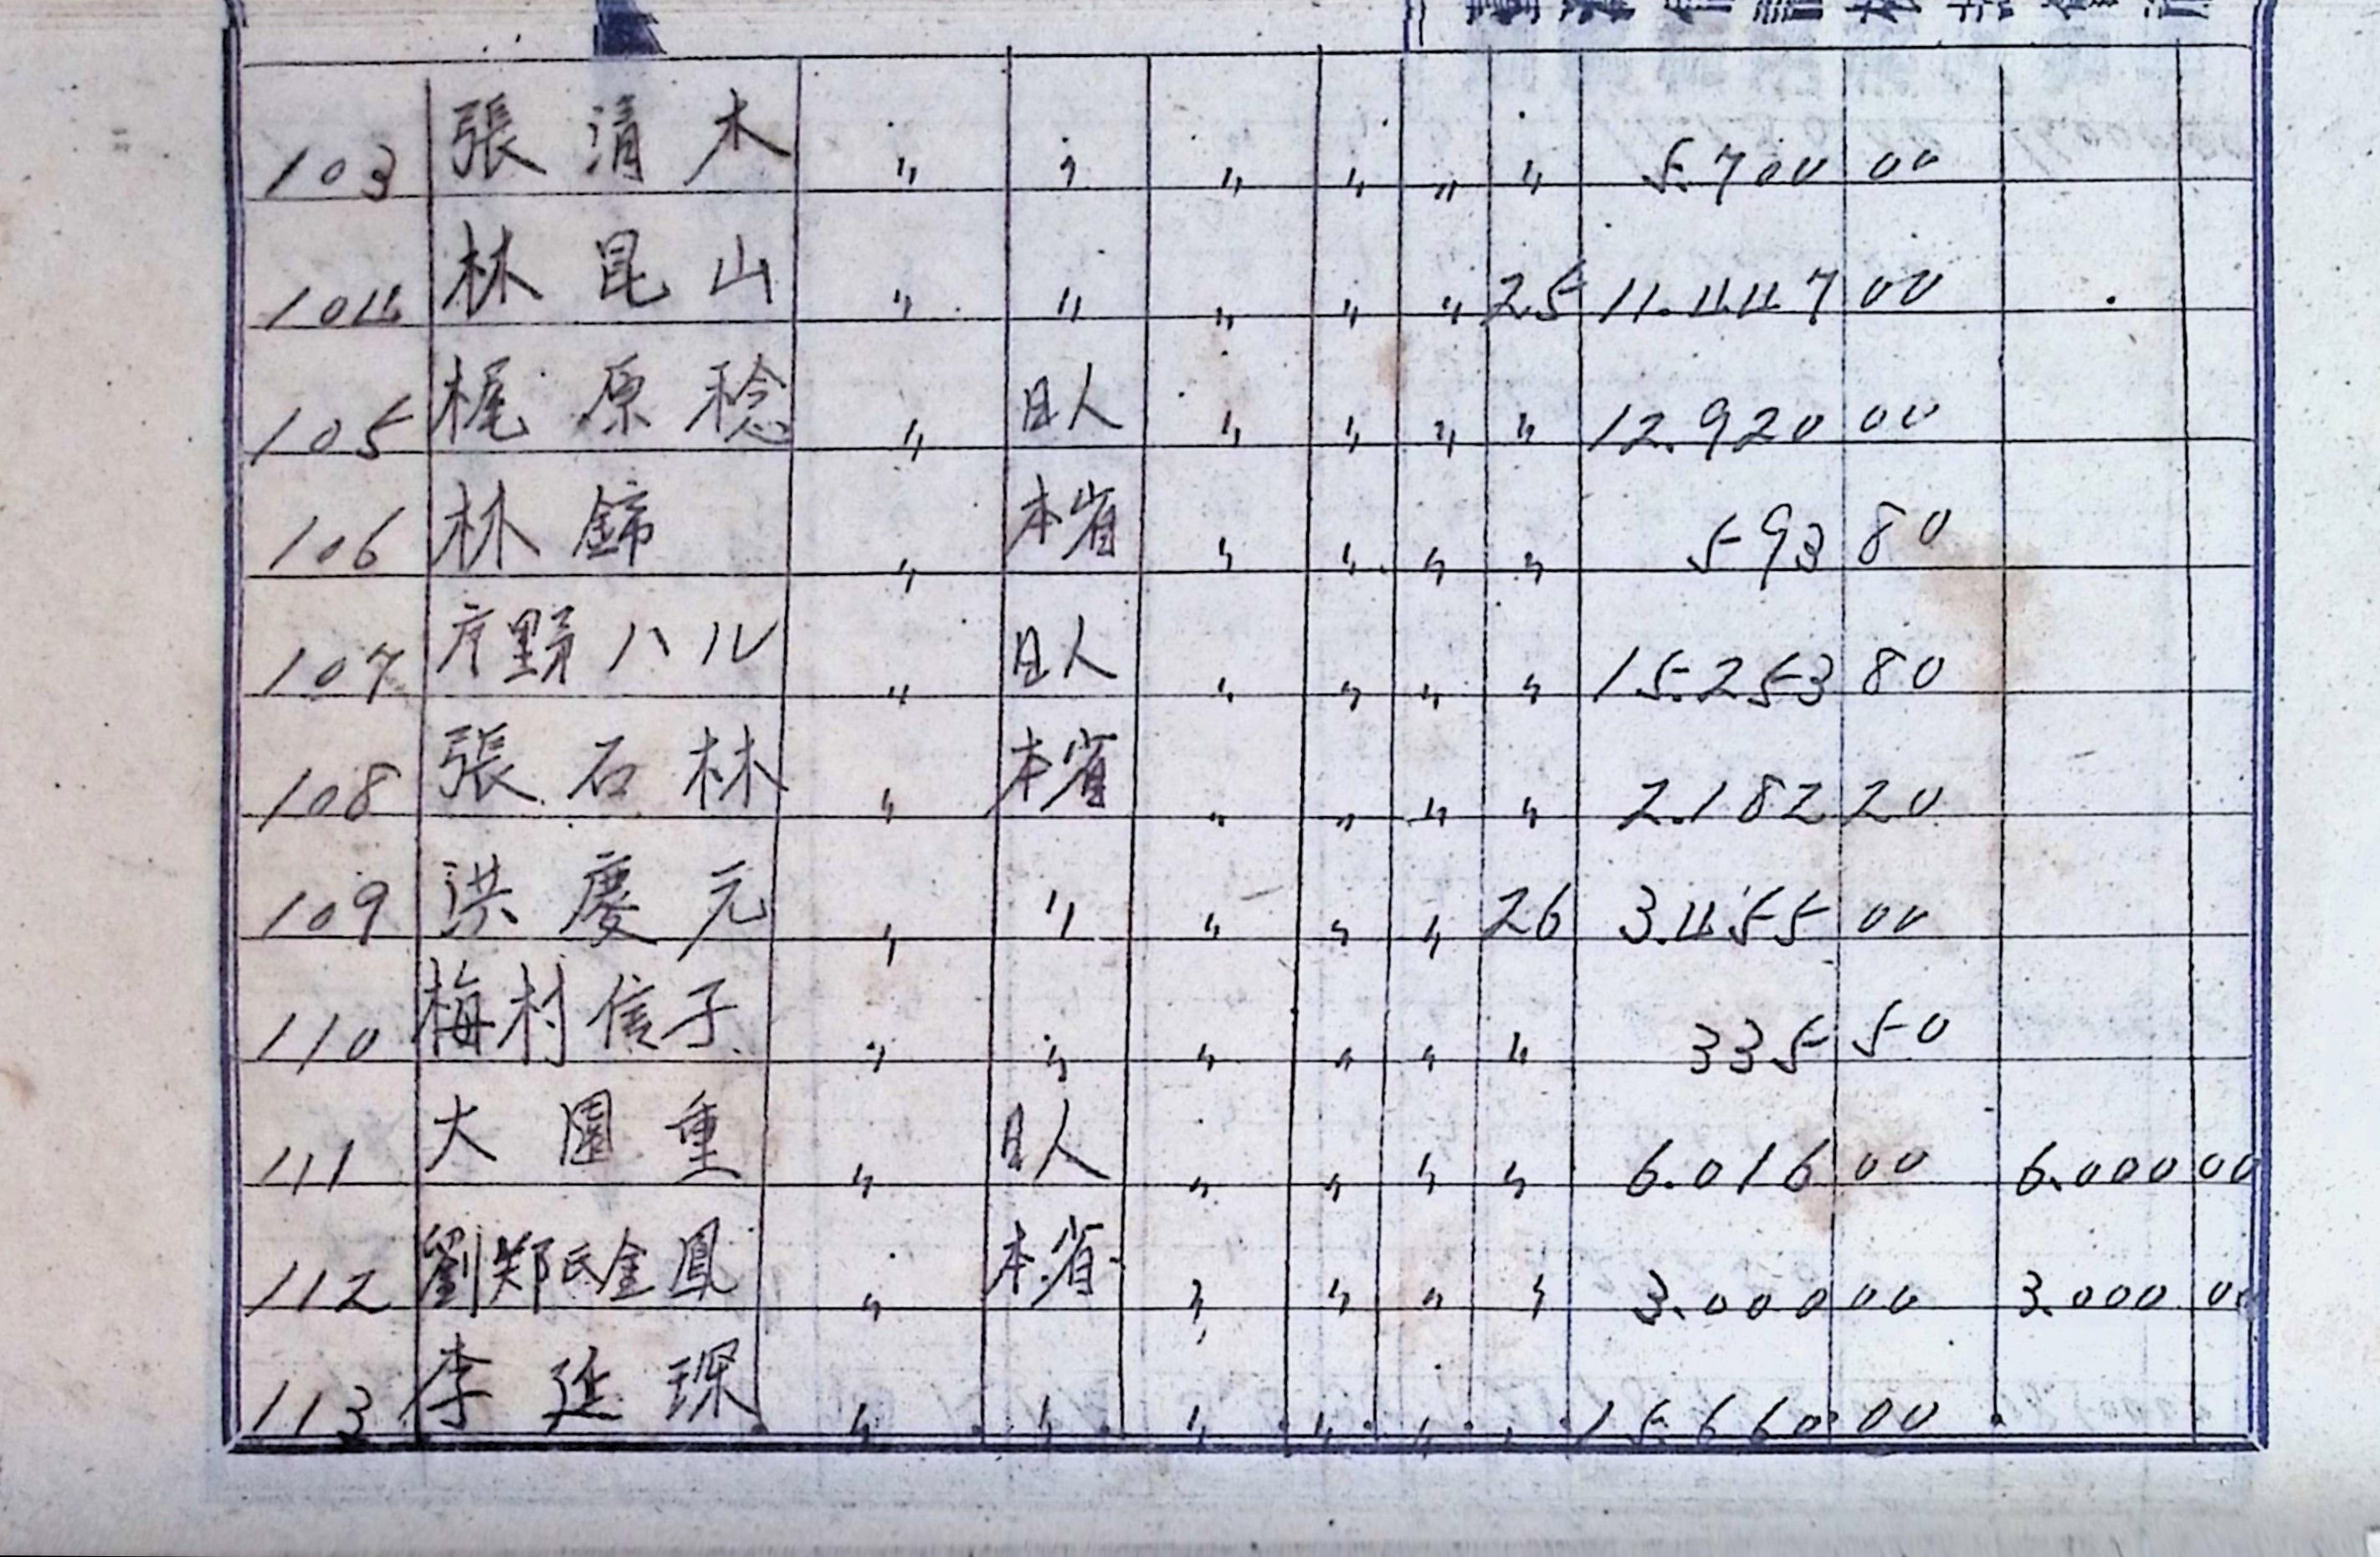 103 張清木 〃 〃 〃 〃 〃 〃 5.700 00
104 林昆山 〃 〃 〃 〃 〃 25 11.447 00
105 梶原稔 〃 日人 〃 〃 〃 〃 12.920 00
106 林錦 〃 本省 〃 〃 〃 〃 593 80
107 野ハル 〃 日人 〃 〃 〃 〃 15.253 80
108 張石林 〃 本省 〃 〃 〃 〃 2.182 20
109 洪慶元 〃 〃 〃 〃 〃 26 3.455 00
110 梅村信子 〃 〃 〃 〃 〃 〃 335 50
111 大園重 〃 日人 〃 〃 〃 〃 6.016 00 6.000 00
112 劉鄭氏金鳳 〃 本省 〃 〃 〃 〃 3.000 00 3.000 00
113 李延琛 〃 〃 〃 〃 〃 〃 15.660 00